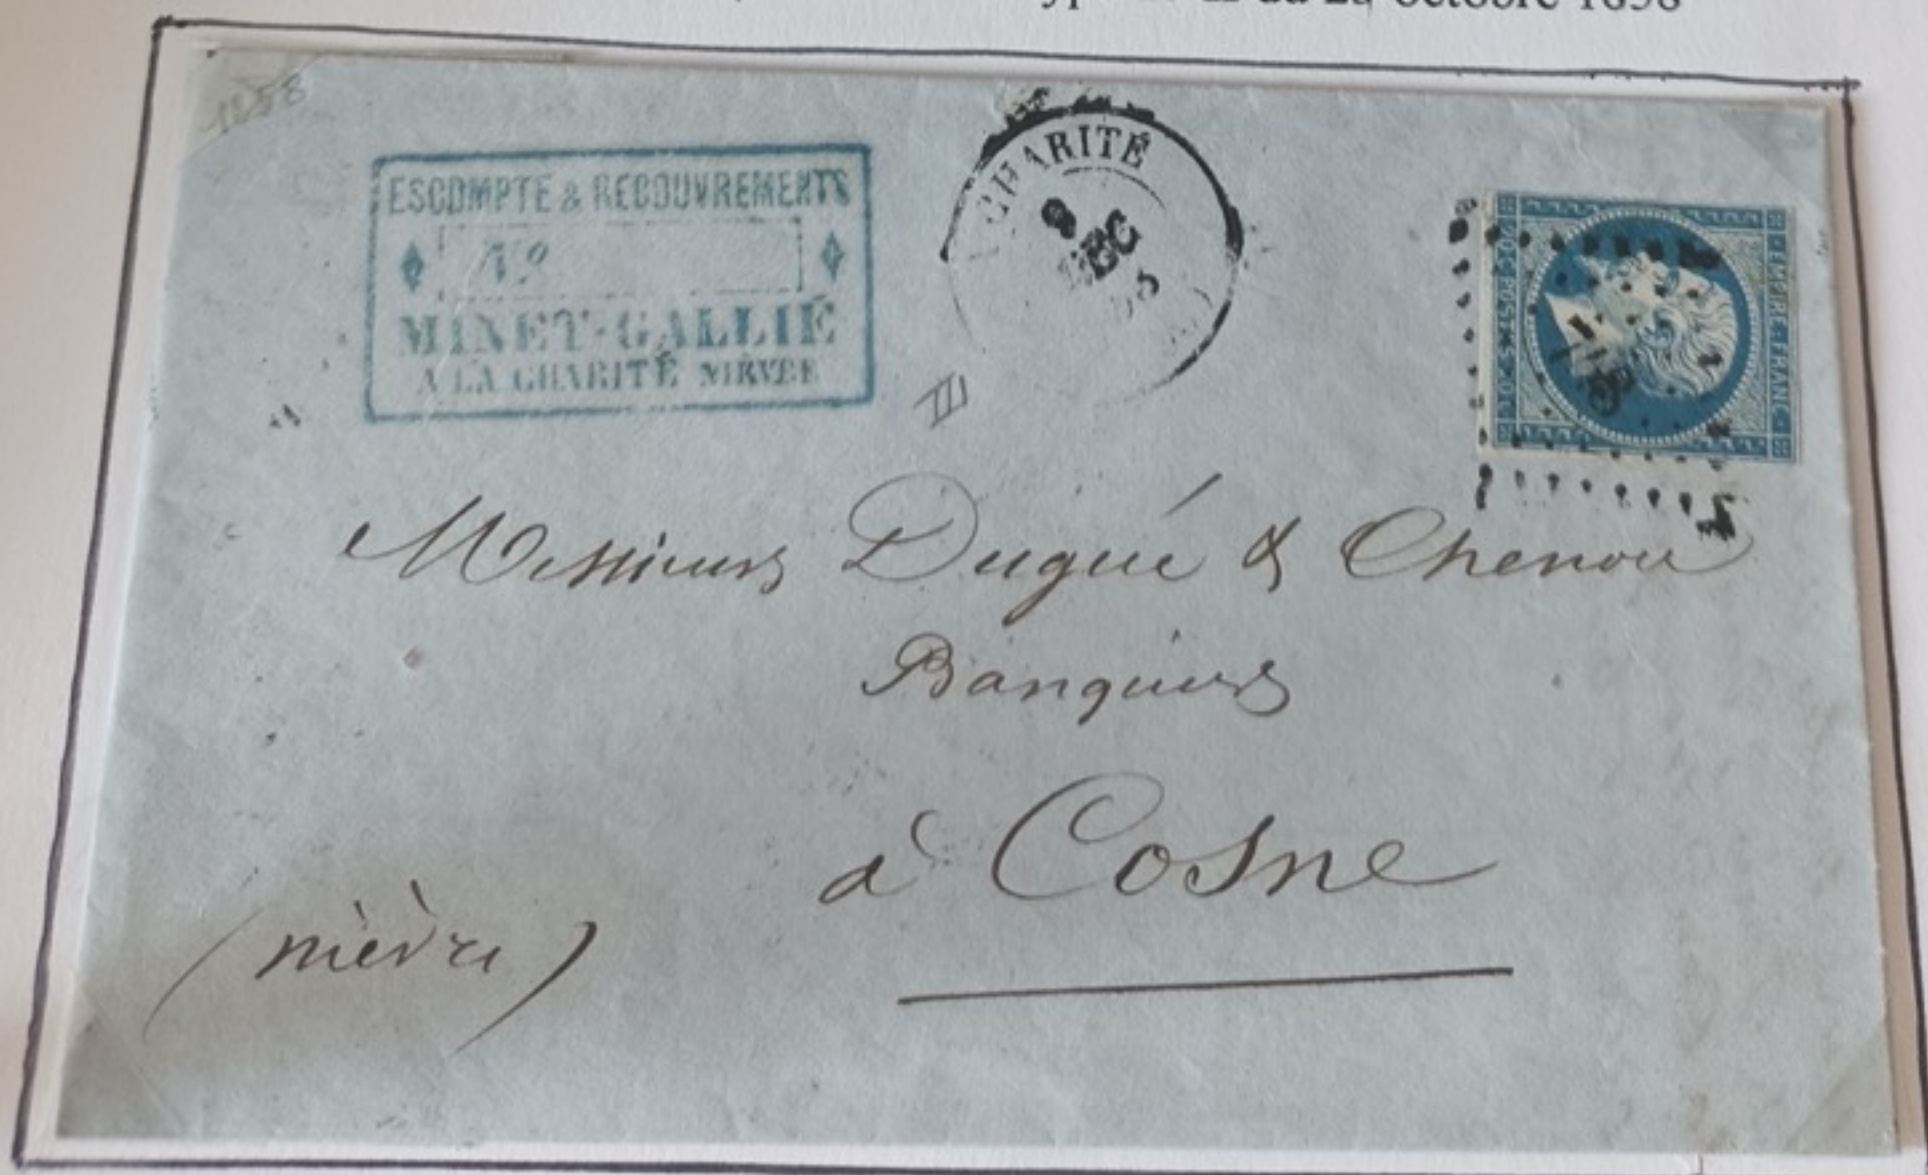 octobre 1858
1858
ESCOMPTE & RECOUVREMENTS
N°
MINET-GALLIÉ
A LA CHARITÉ NIÈVRE
LA CHARITÉ
9
DEC
58
III
EMPIRE FRANC
20 C POSTES 20 C
Messieurs Dugué & Chenou
Banquiers
à Cosne
(nièvre)